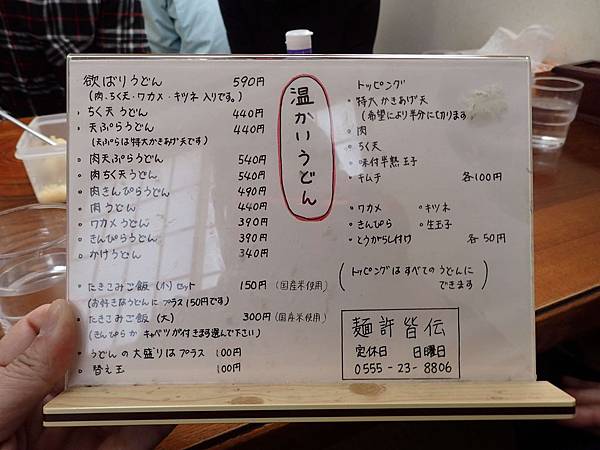 欲ばりうどん 590円
(肉、ちく天・ワカメ・キツネ入りです。)
・ちく天うどん 440円
・天ぷらうどん 440円
(天ぷらは特大かきあげ天です)
・肉天ぷらうどん 540円
・肉ちく天うどん 540円
・肉きんぴらうどん 490円
・肉うどん 440円
・ワカメうどん 390円
・きんぴらうどん 390円
・かけうどん 340円
・たきこみご飯(小)セット 150円(国産米使用)
(お好きなうどんにプラス150円です)
・たきこみご飯(大) 300円(国産米使用)
(きんぴらかキャベツが付きます選んで下さい)
・うどんの大盛りはプラス 100円
・替え玉 100円
温かいうどん
トッピング
・特大かきあげ天
(希望により半分に切ります
・肉
・ちく天
・味付半熟玉子
・キムチ 各100円
・ワカメ ・キツネ
・きんぴら ・生玉子
・とうがらし付け 各50円
(トッピングはすべてのうどんに
できます)
麺許皆伝
定休日 日曜日
0555-23-8806